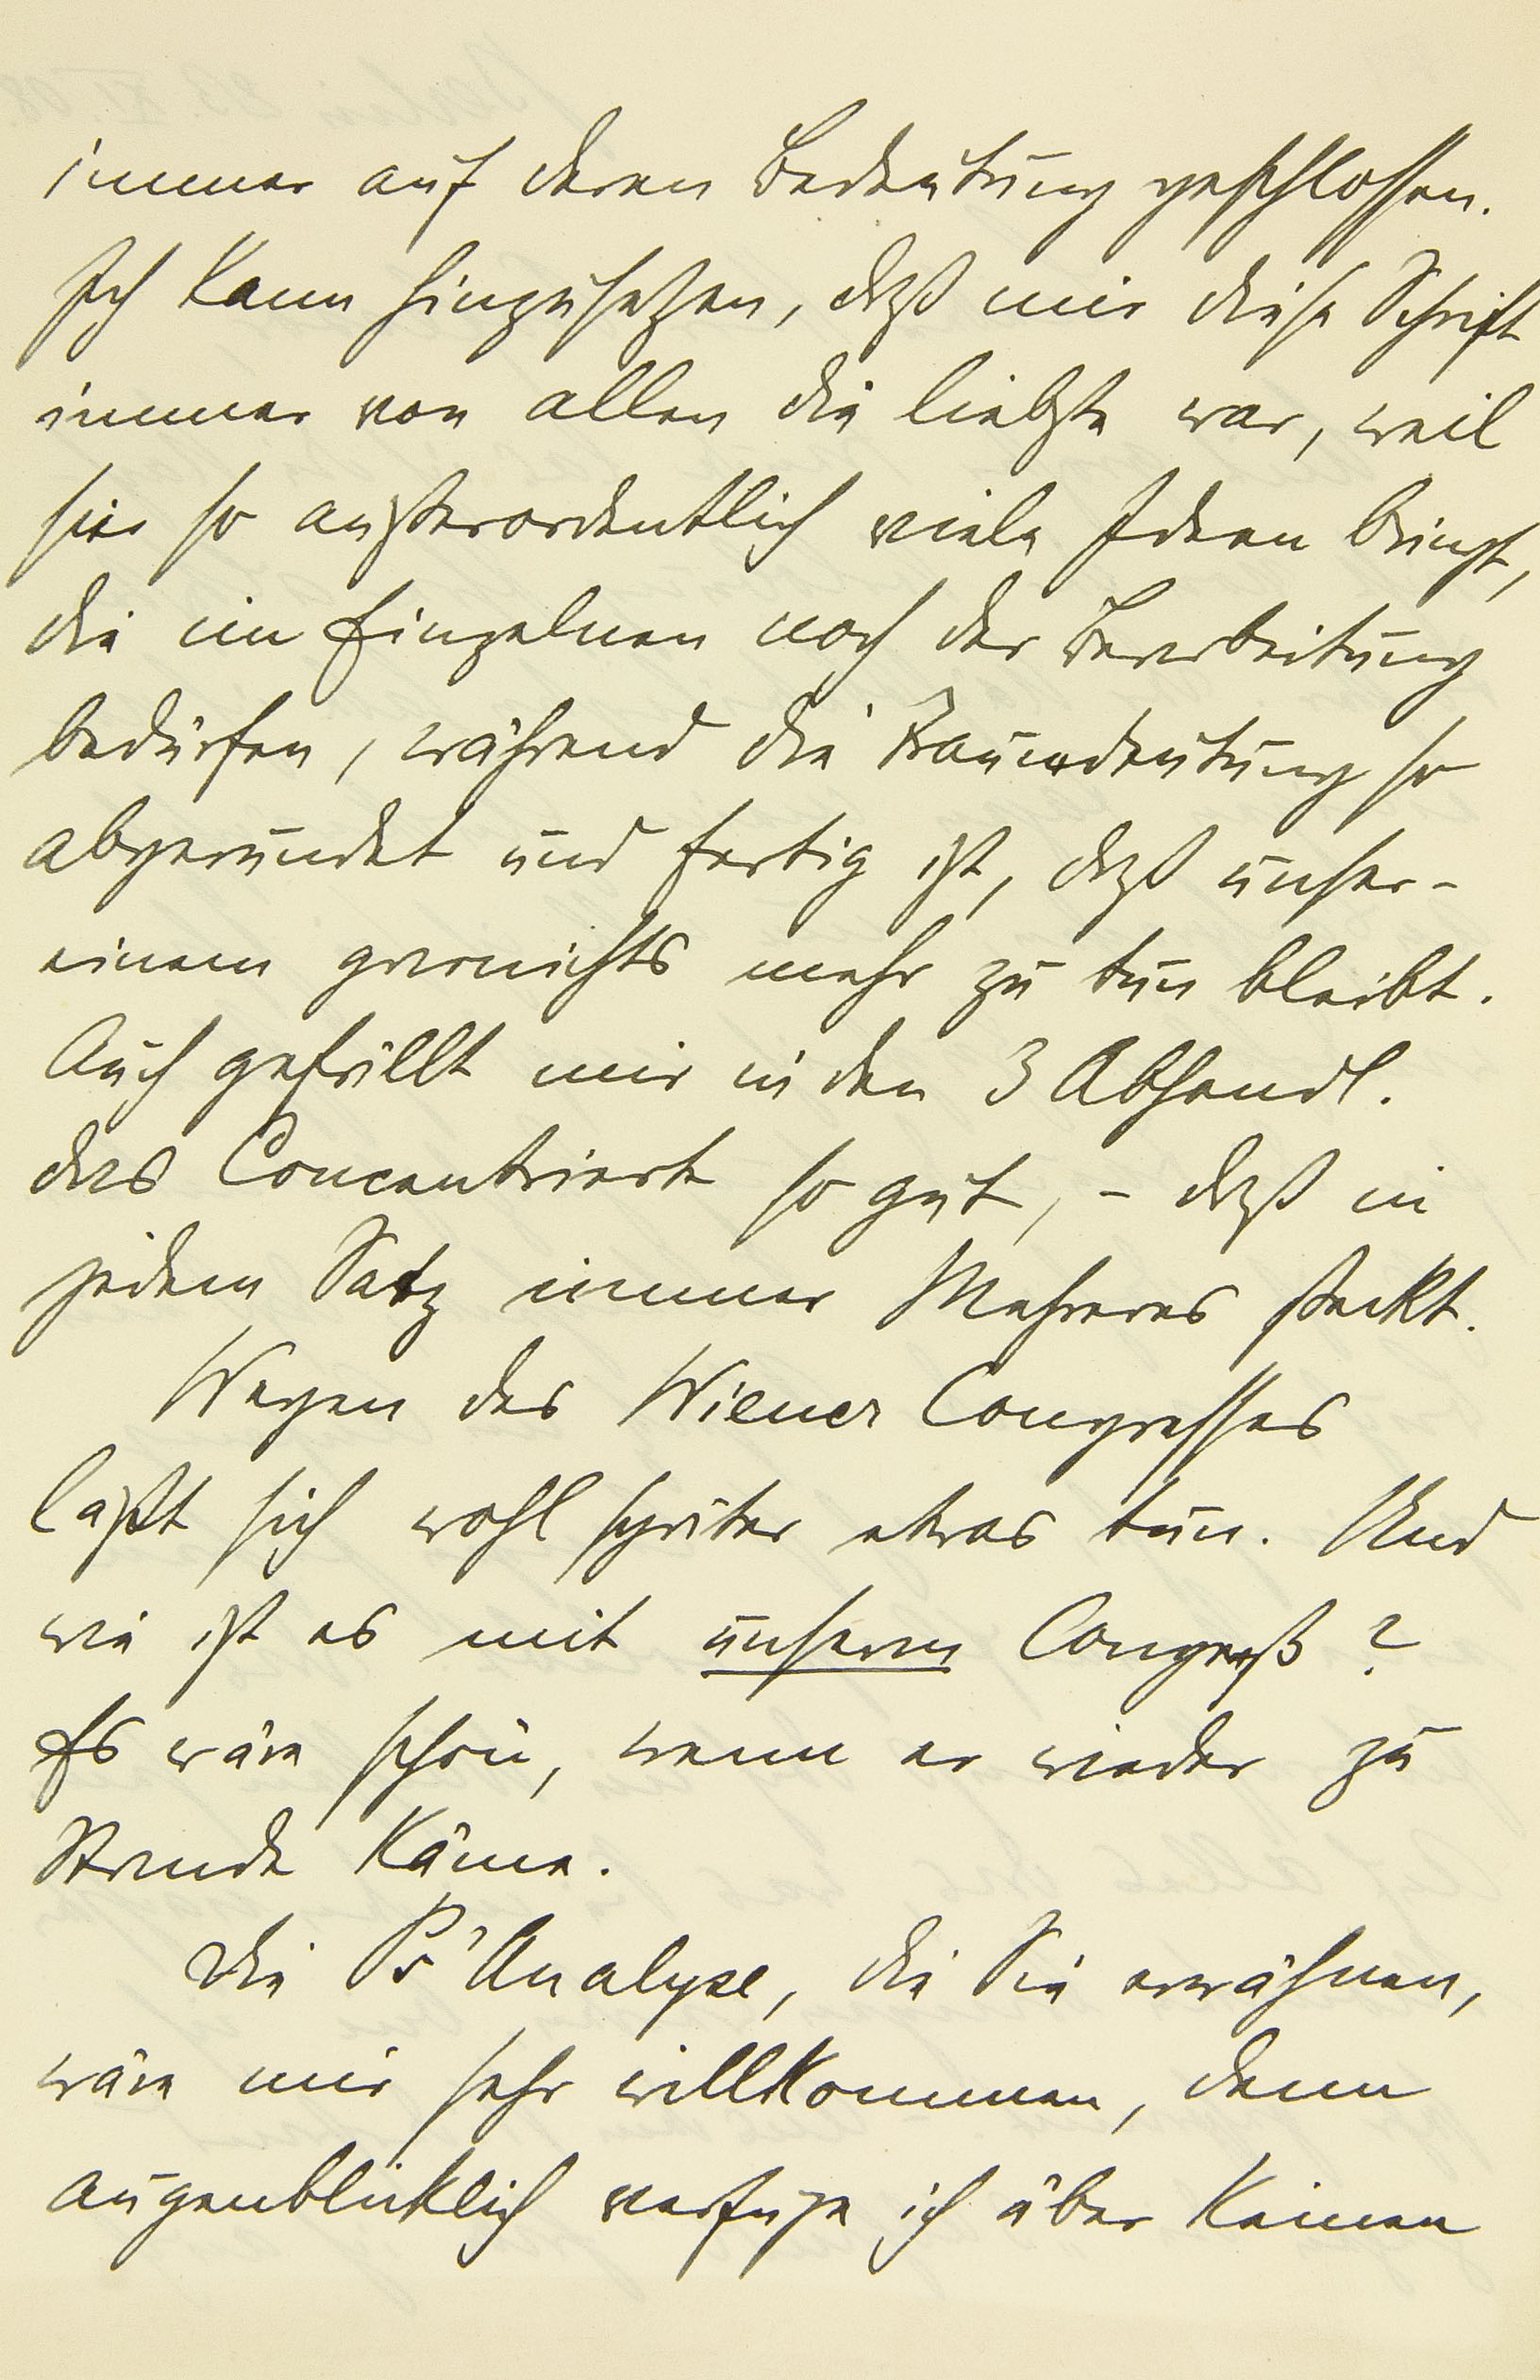 immer auf deren Bedeutung geschlossen.
Ich kann hinzusetzen, daß mir diese Schrift
immer von allen die liebste war, weil
sie so außerordentlich viele Ideen bringt,
die im Einzelnen noch der Bearbeitung
bedürfen, während die Traumdeutung so
abgerundet und fertig ist, daß unser-
einem garnichts mehr zu tun bleibt.
Auch gefällt mir in den 3 Abhandl.
das Concentrierte so gut, – daß in
jedem Satz immer Mehreres steckt.
Wegen des Wiener Congresses
läßt sich wohl später etwas tun. Und
wie ist es mit unserm Congreß?
Es wäre schön, wenn er wieder zu
Stande käme.
Die Ps'Analyse, die Sie erwähnen,
wäre mir sehr willkommen, denn
augenblicklich verfüge ich über keinen